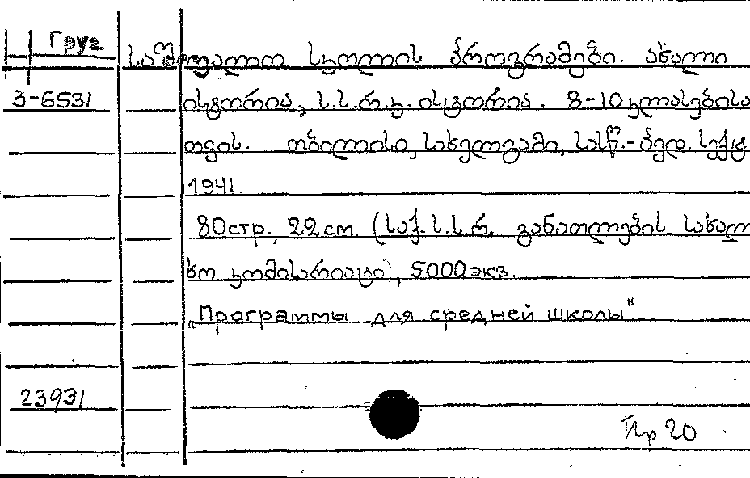 Груз
საშუალო სკოლის პროგრამები. ახალი
3-6531 ისტორია, ს.ს.რ.კ. ისტორია. 8-10 კლასებისა
თვის. თბილისი, სახელგამი, სასწ.-პედ. სექტ
1941.
80стр., 22 см. (საქ. ს.ს.რ. განათლების სახალ
ხო კომისარიატი), 5000 экз.
„Программы для средней школы"
23931
Пр 20